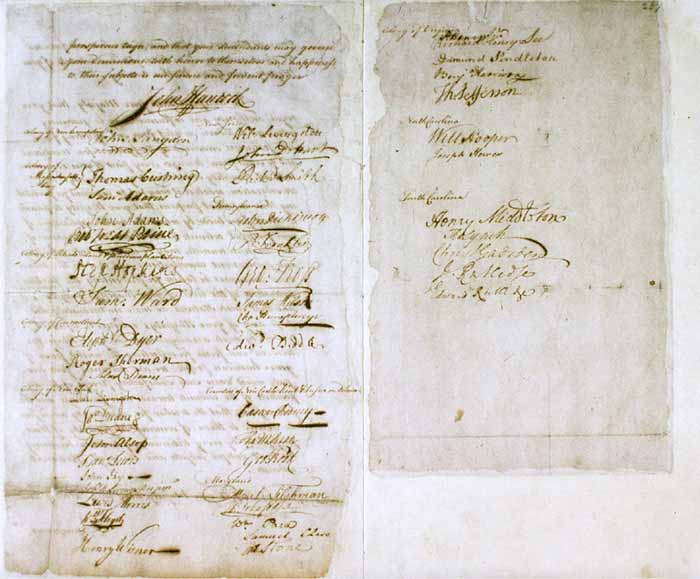 prosperous reign, and that your descendants may govern
your dominions with honor to themselves and happiness
to their subjects is our sincere and fervent prayer
John Hancock
Colony of New Hampshire
John Langdon
Colony of Massachusetts Bay
Thomas Cushing
Sam Adams
John Adams
Rob Treat Paine
Step Hopkins
Sam: Ward
Colony of Connecticut
Elipht Dyer
Roger Sherman
Silas Deane
Colony of New York
Phil Livingston
Jas Duane
John Alsop
Frans Lewis
John Jay
Lewis Morris
Wm Floyd
Henry Wisner
New Jersey
Wil: Livingston
John D Hart
Richd Smith
Pennsylvania
John Dickinson
B Franklin
Geo: Ross
James Wilson
Chas Humphreys
Edwd Biddle
Counties of New Castle Kent & Sussex on Delaware
Caesar Rodney
Tho M:Kean
Geo Read
Maryland
Mat Tilghman
Wm Paca
Samuel Chase
Stone
Colony of Virginia
P. Henry Jr
Richard Henry Lee
Edmund Pendleton
Benj Harrison
Th: Jefferson
North Carolina
Will Hooper
Joseph Hewes
South Carolina
Henry Middleton
Tho Lynch
Christ Gadsden
J Rutledge
Edward Rutledge